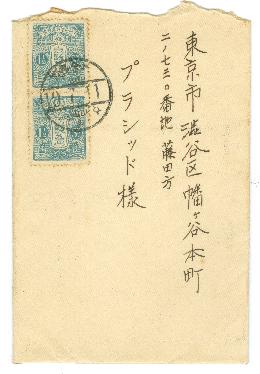 東京市澁谷区幡ヶ谷本町
二ノ七三〇番地 藤田方
プラシッド様